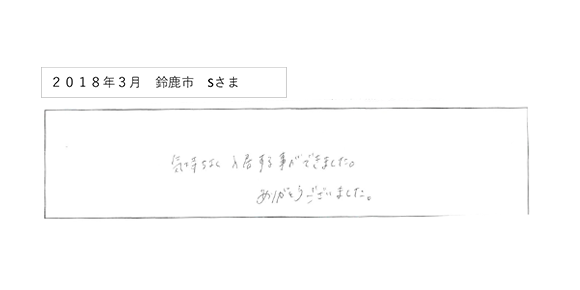 ２０１８年３月　鈴鹿市　Sさま
気持ちよく入居する事ができました。
ありがとうございました。